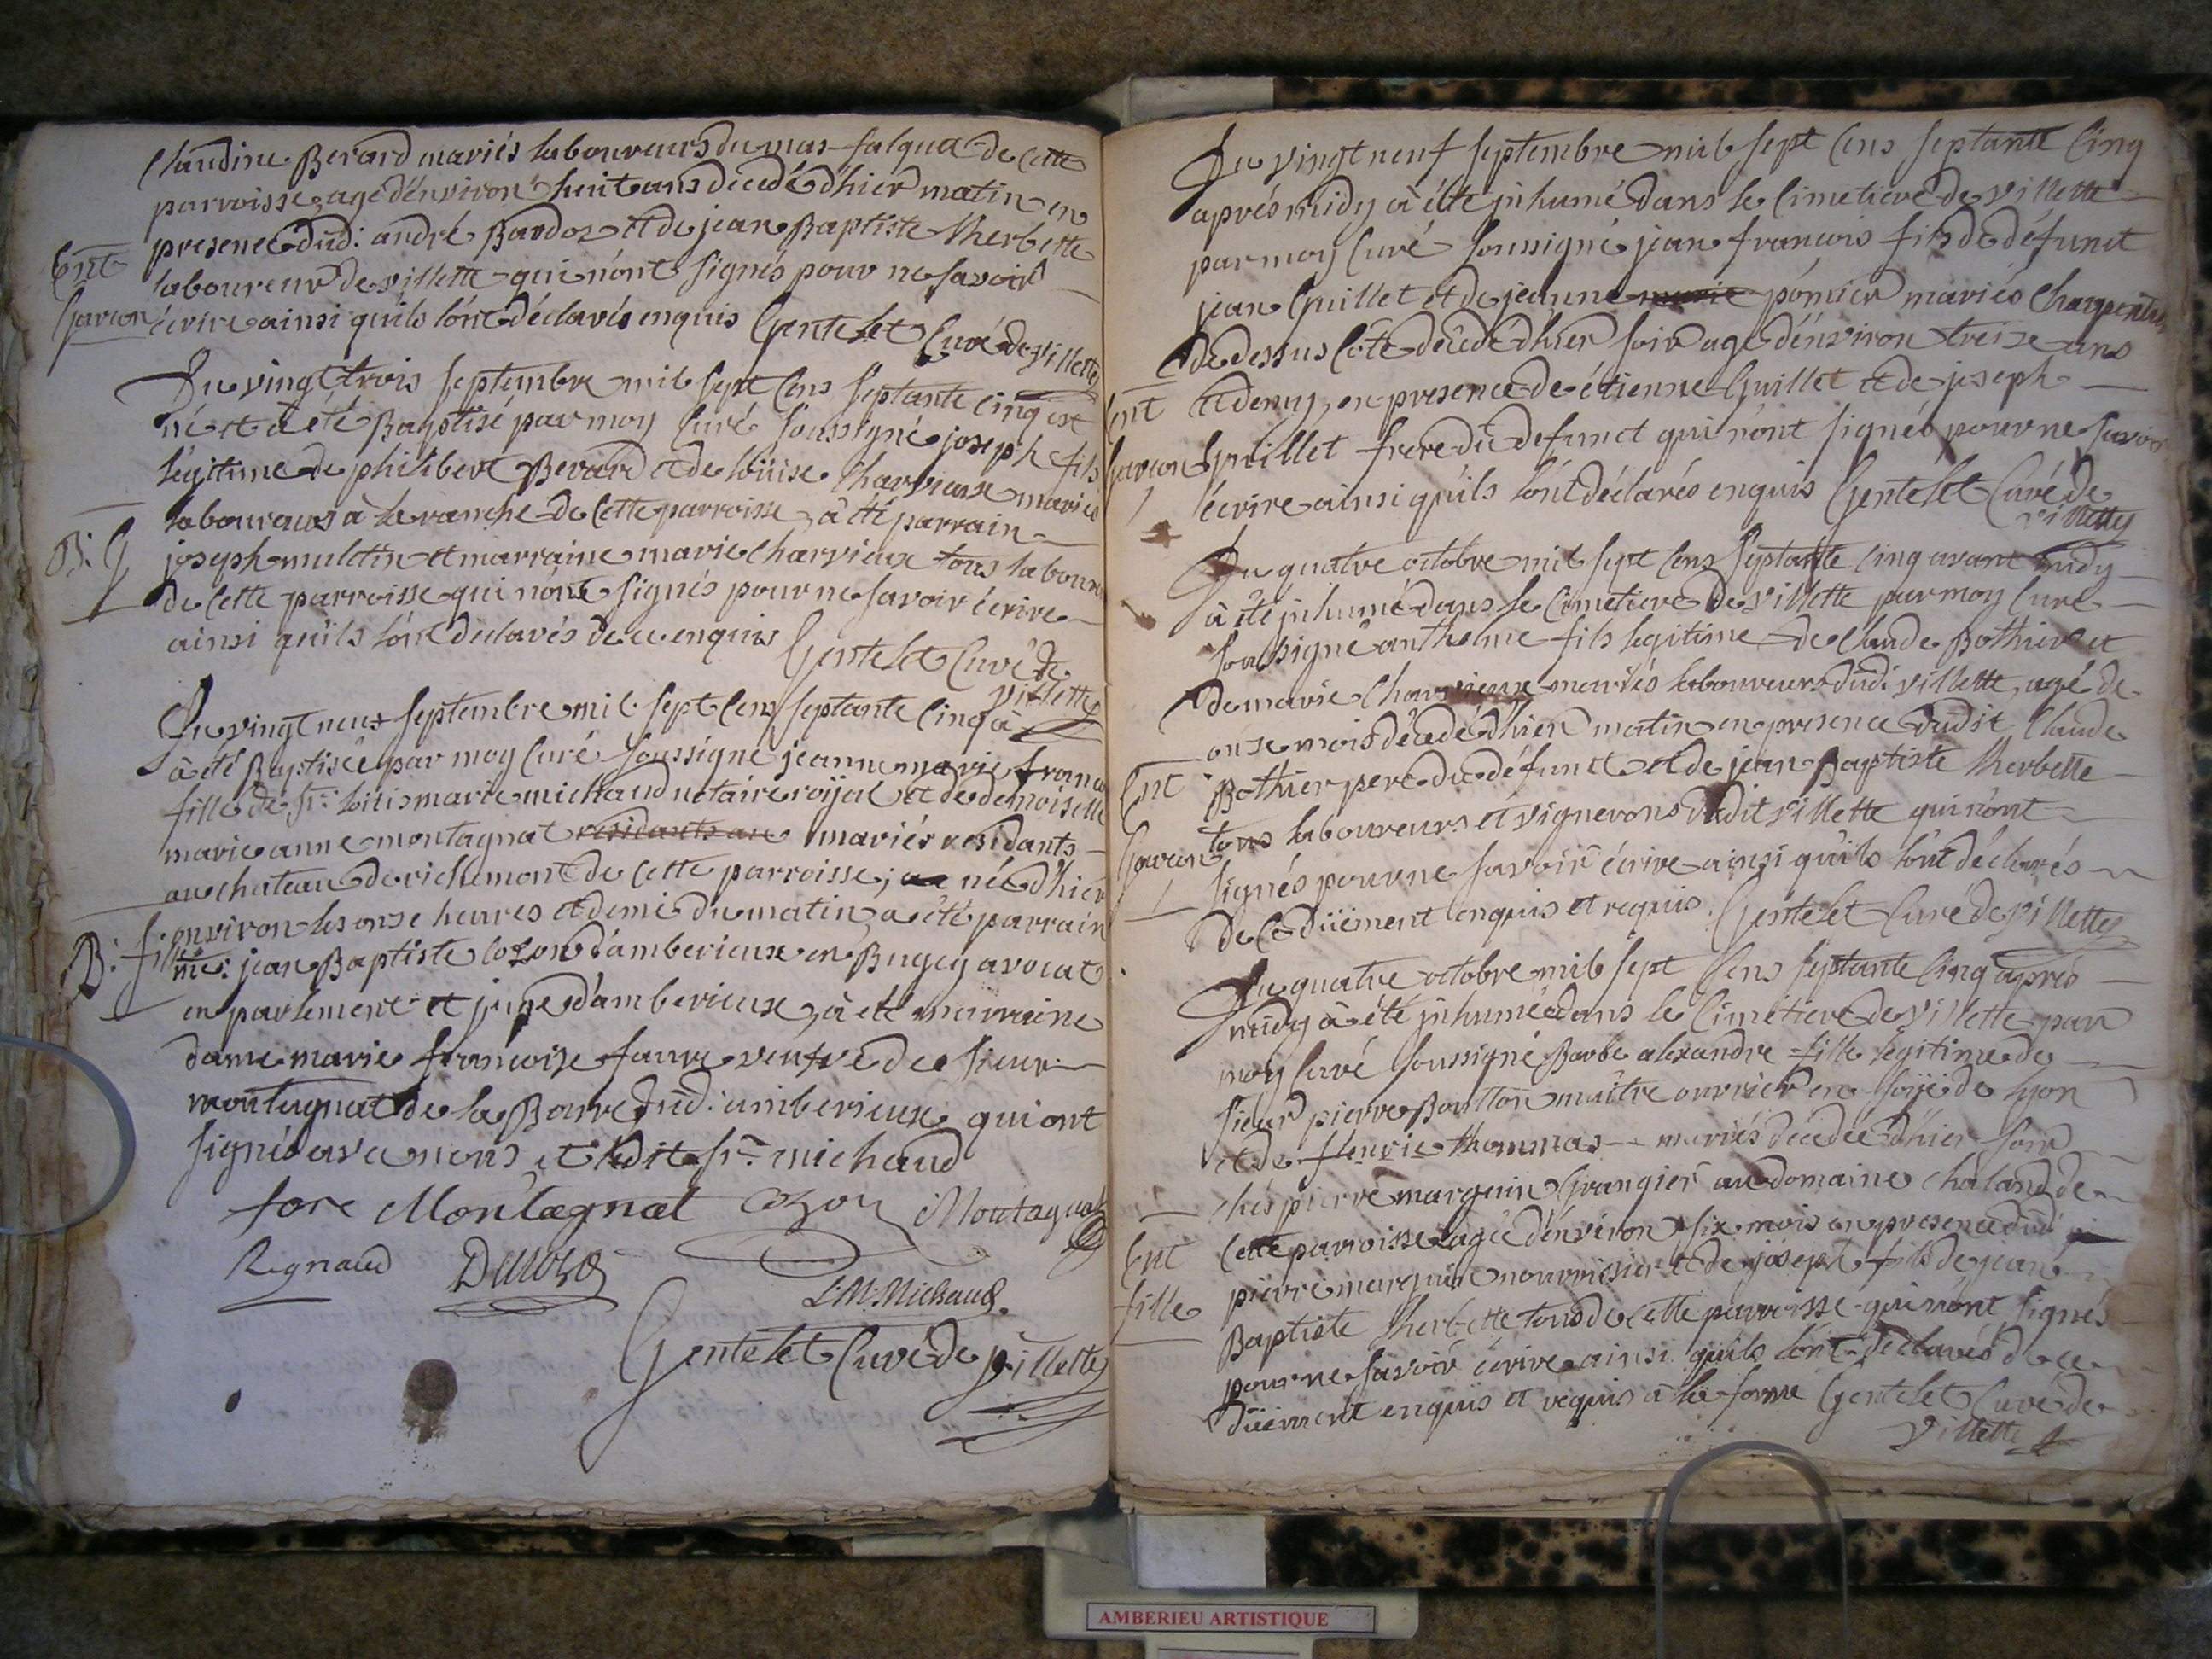 Claudine Berard mariés laboureurs du mas falquet de cette
parroisse, agé d'environ huit ans decedé d'hier matin en
presence dud: andré Bardoz et de jean Baptiste therbette
Ent
laboureur de villette qui n'ont signés pour ne savoir
Garcon
écrire ainsi qu'ils l'ont déclarés enquis Gentelet Curé de villette
Du vingt trois septembre mil sept cens septante cinq est
né et a été Baptisé par moy Curé soussigné joseph fils
légitime de philibert Berard et de loüise Charvieux mariés
laboureurs à la ranche de cette parroisse, à été parrain
B: G
joseph muletin et marraine marie Charvieux tous laboureurs
de cette parroisse qui n'ont signés pour ne savoir écrire
ainsi qu'ils l'ont déclarés de ce enquis Gentelet Curé de
villette
Du vingt neuf septembre mil sept cens septante cinq à
à été Baptisée par moy Curé soussigné jeanne marie
fille de sr: loüis marie michaud notaire roÿal et de demoiselle
marie anne montagnat residants au mariés residants
au chateau de richemont de cette parroisse, née d'hier
environ les onse heures et demi du matin, a été parrain
B: fille
me: jean Baptiste cozon d'amberieux en Bugey avocat
en parlement et juge d'amberieux, à été marraine
dame marie françoise faure veufve de sieur
montagnat de la Barre dud: amberieux qui ont
signés avec nous et ledit sr: michaud
fore Montagnat Cozon Montagnat
Regnaud
L: M: Michaud
Gentelet Curé de villette
Du vingt neuf septembre mil sept cens septante cinq
après midy à été inhumé dans le cimetiere de villette
par moy Curé soussigné jean francois fils de défunct
jean Guillet et de jeanne marie pómier mariés Charpentier
de dessus Côte décedé d'hier soir agé d'environ treise ans
Ent
et demy, en presence de étienne Guillet et de joseph
Garcon
Guillet frere du defunct qui n'ont signés pour ne savoir
écrire ainsi qu'ils l'ont déclarés enquis Gentelet Curé de
villette
Du quatre octobre mil sept cens septante cinq avant midy
à été inhumé dans le cimetiere de villette par moy Curé
soussigné anthelme fils légitime de Claude Bothier et
de marie Charvieux mariés laboureurs dud: villette, agé de
onse mois décedé d'hier matin en presence dudit Claude
Ent
Bothier pere du défunct et de jean Baptiste therbette
Garcon
tous laboureurs et vignerons dudit villette qui n'ont
signés pour ne savoir écrire ainsi qu'ils l'ont déclarés
de ce düement enquis et requis. Gentelet Curé de villette
Du quatre octobre mil sept cens septante cinq après
midy à été inhumée dans le cimétiere de villette par
moy Curé soussigné Barbe alexandre fille légitime de
sieur pierre Boulton maître ouvrier en soÿe de lyon
et de fleurie thommas mariés decedée d'hier soir
chés pierre marguin Grangier au domaine chaland de
cette parroisse agée d'environ six mois en presence dud:
Ent
pierre marguin nourrissier et de joseph fils de jean
fille
Baptiste therbette tous de cette parroisse qui n'ont signés
pour ne savoir écrire ainsi qu'ils l'ont déclarés de ce
düement enquis et requis à la forme Gentelet Curé de
villette
AMBERIEU ARTISTIQUE